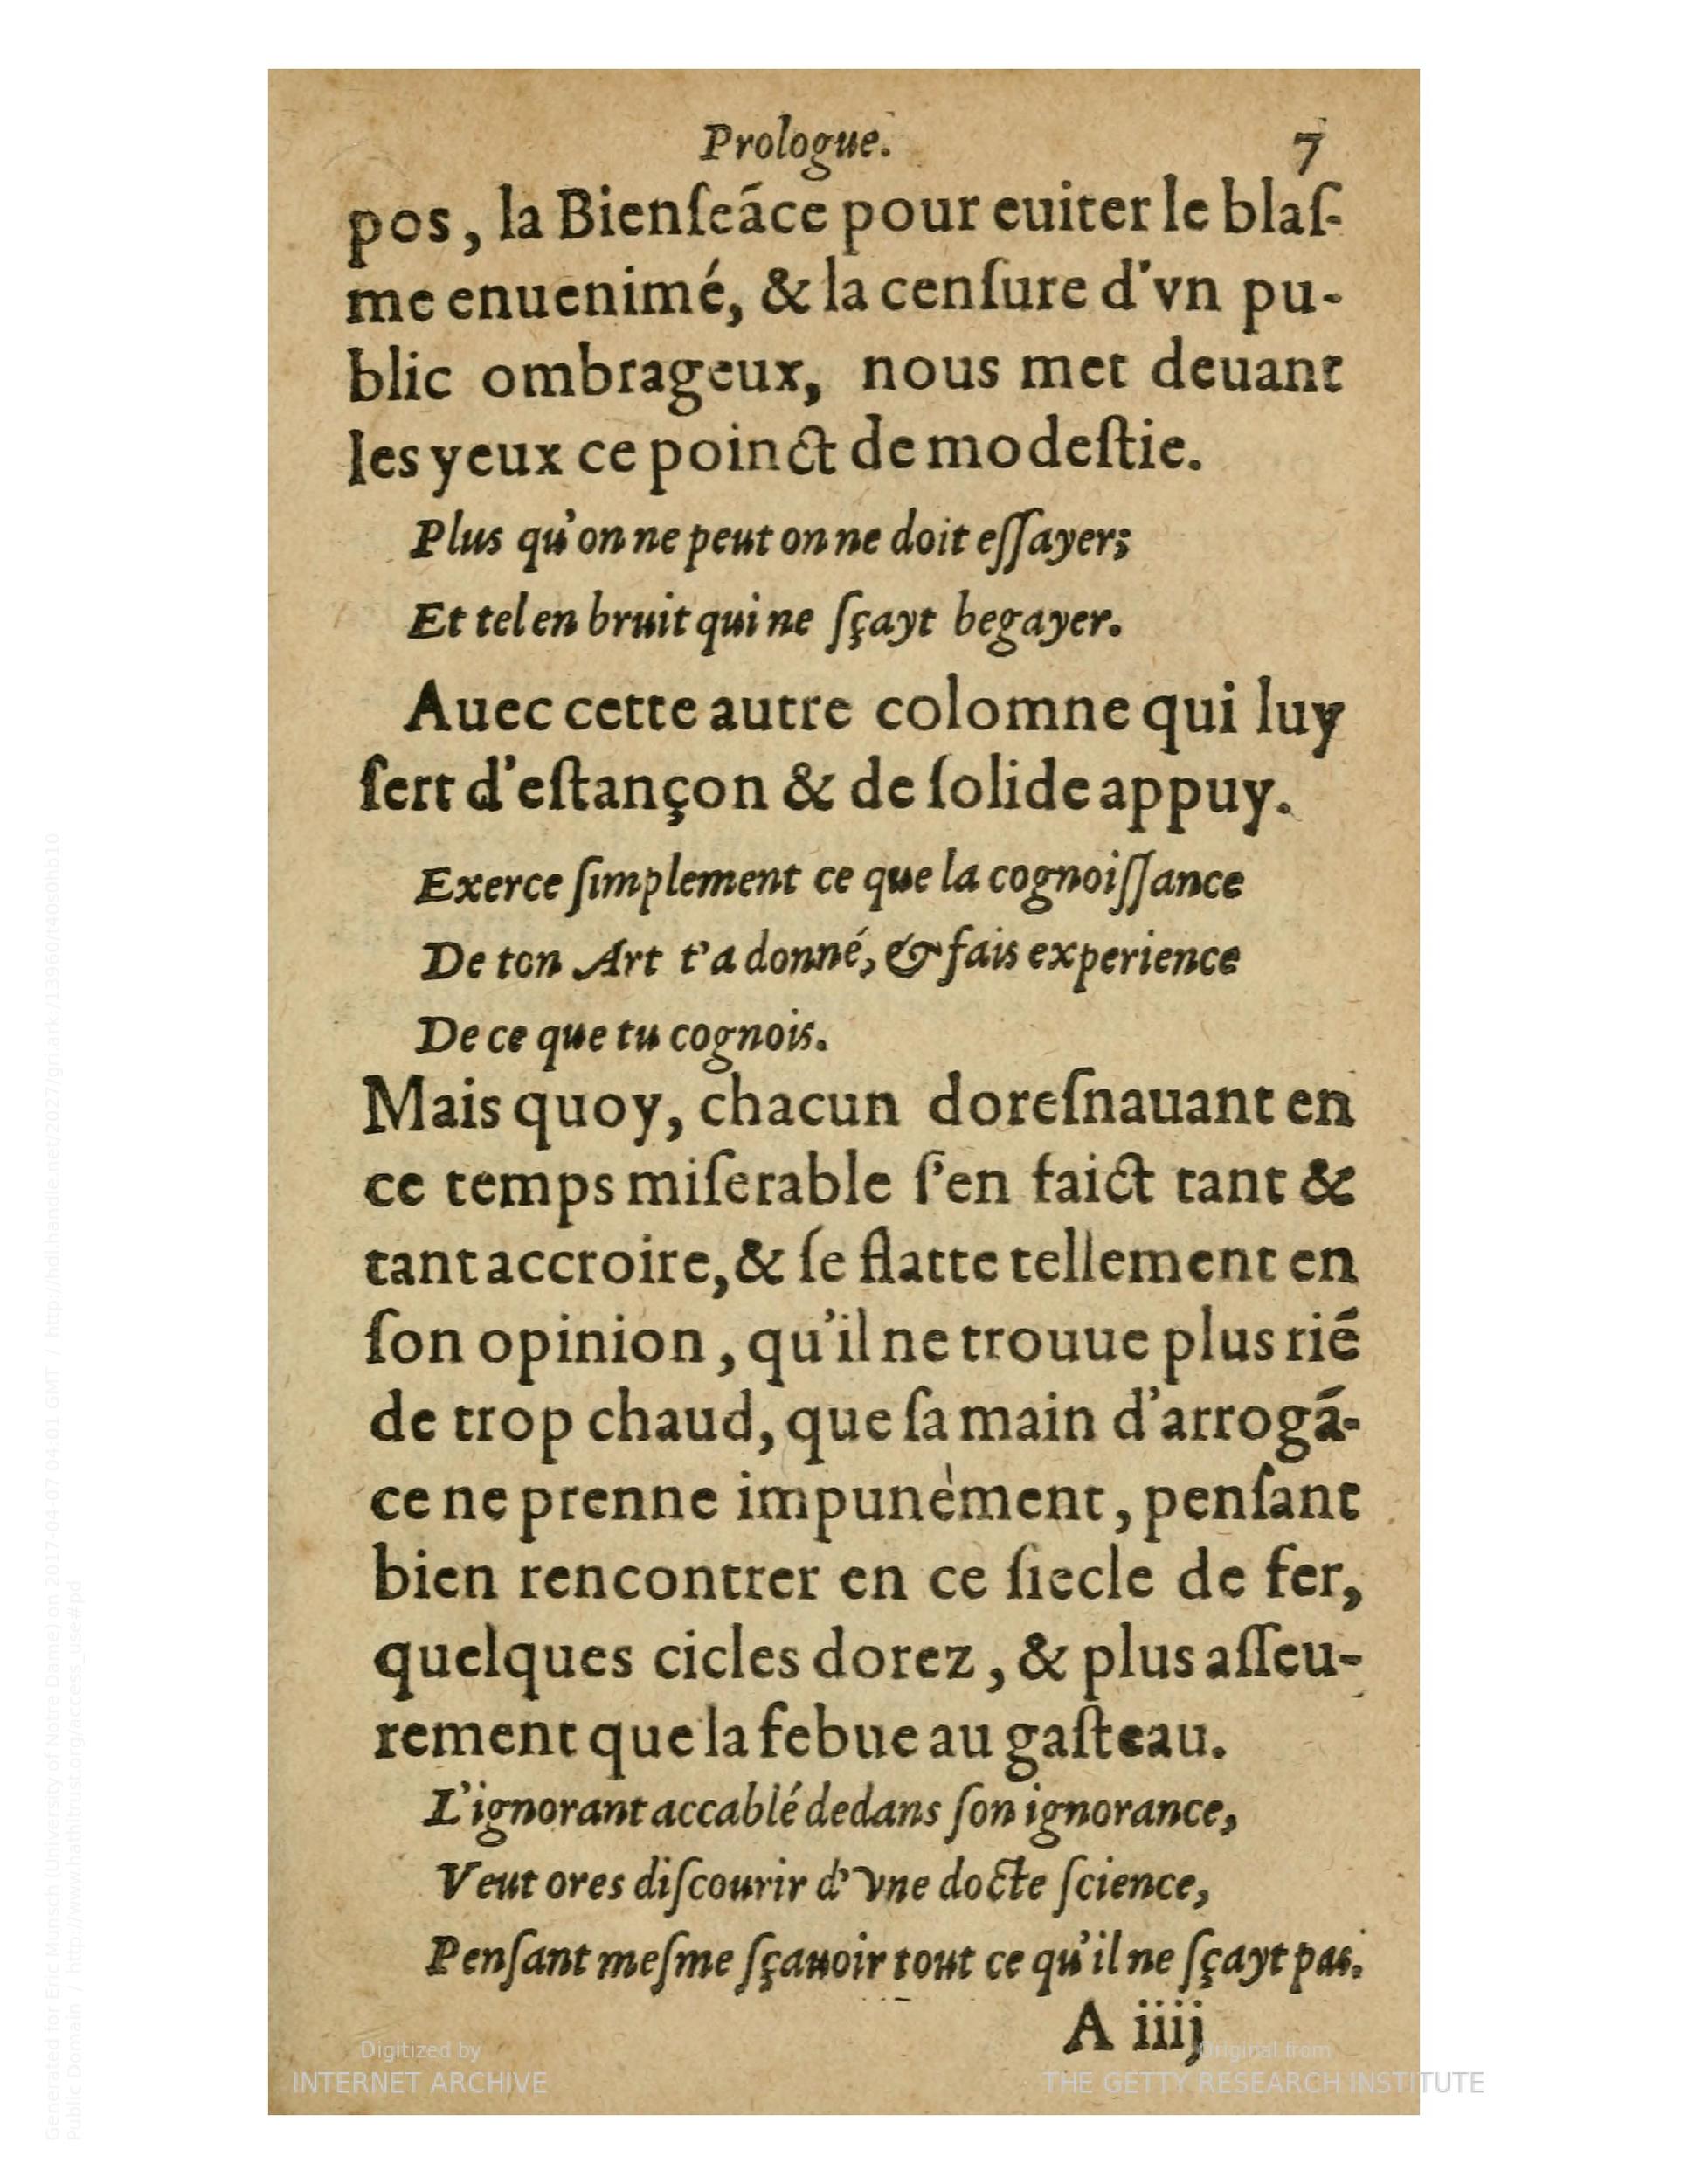 Prologue. 7
pos, la Bienſeãce pour euiter le blaſ-
me enuenimé, & la cenſure d'vn pu-
blic ombrageux, nous met deuant
les yeux ce poinct de modeſtie.
Plus qu'on ne peut on ne doit eſſayer;
Et tel en bruit qui ne ſçayt begayer.
Auec cette autre colomne qui luy
ſert d'eſtançon & de ſolide appuy.
Exerce ſimplement ce que la cognoiſſance
De ton Art t'a donné, & fais experience
De ce que tu cognois.
Mais quoy, chacun doreſnauant en
ce temps miſerable ſ'en faict tant &
tant accroire, & ſe flatte tellement en
ſon opinion, qu'il ne trouue plus riẽ
de trop chaud, que ſa main d'arrogã-
ce ne prenne impunèment, penſant
bien rencontrer en ce ſiecle de fer,
quelques cicles dorez, & plus aſſeu-
rement que la febue au gaſteau.
L'ignorant accablé dedans ſon ignorance,
Veut ores diſcourir d'vne docte ſcience,
Penſant meſme ſçauoir tout ce qu'il ne ſçayt pas.
A iiij
Digitized by
INTERNET ARCHIVE
Original from
THE GETTY RESEARCH INSTITUTE
Generated for Eric Munsch (University of Notre Dame) on 2017-04-07 04:01 GMT / http://hdl.handle.net/2027/gri.ark:/13960/t40s0hb10
Public Domain / http://www.hathitrust.org/access_use#pd